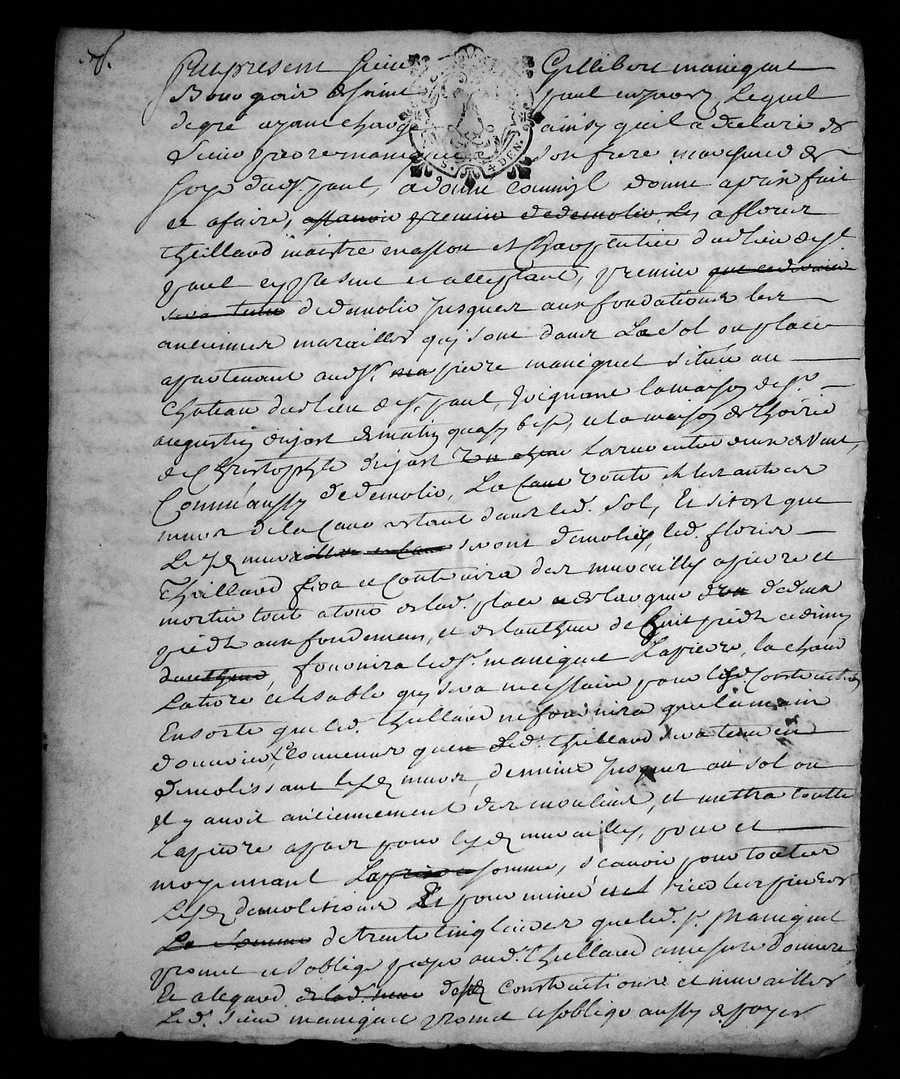 Pnt present sieur Gellibert manequet
Bourgois de saint paul en Jarez, Lequel
de gre ayant charge ainsy qu'il a declaré de
sieur pierre manequet son frere marchand de
soye dud. st. paul, a donné commis donne a prix fait
et afaire, a floris
theilland maistre masson et charpentier dud. lieu de st.
paul cy present et acceptant, premier
de demolir jusques aux fondations les
anciennes murailles quy sont dans La sol ou place
apartenant aud. sr. pierre manequet située au
chateau dud. lieu de st. paul, joignant la maison de sr.
augustin dujast de matin et la maison de
de Christophle dujast La rue entre deux de vent,
Comme aussy de demolir, La voute et les autres
murs de la Cave estant dans led. sol, Et sitost que
Lesd. murs seront demolis, led. floris
theilland fera et Construira des murailles a pierre et
mortier tout autour de lad. place de deux
pieds aux fondements, et de hauteur de huit pieds et demy
fournira led. sr. manequet La pierre, la chaud
La terre et le sable quy sera necessaire pour lesd. Constructions
En sorte que led. theilland ne fournira que la main
d'oeuvre, Convenu que Led. theilland sera tenu en
demolissant lesd. murs, de miner jusques au sol ou
il y avoit anciennement des moulins, et mettra toutte
La pierre a part pour lesd. murailles, pour et
moyennant somme, scavoir pour touttes
Lesd. demolitions Et pour miner et tirer les pierres
de trente cinq livres que led. sr. Manequet
promet et s'oblige payer aud. theilland a mesure d'oeuvre
Et a legard desd. constructions et murailles
Led. sieur manequet promet et s'oblige aussy de payer